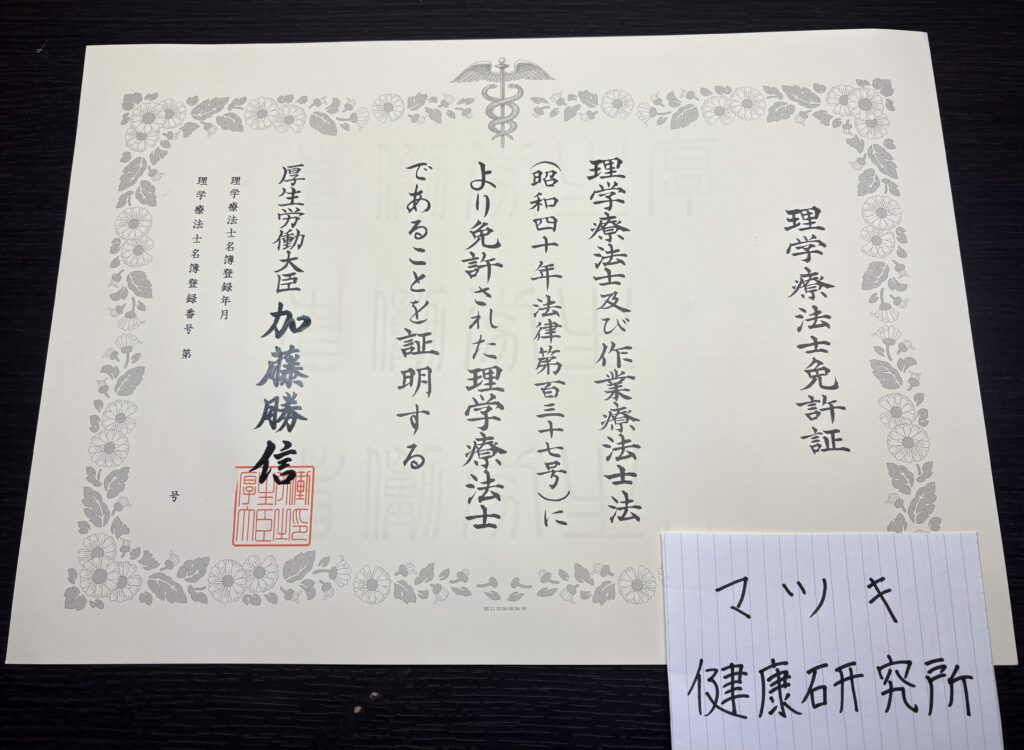 理学療法士免許証
理学療法士及び作業療法士法
(昭和四十年法律第百三十七号)に
より免許された理学療法士
であることを証明する
厚生労働大臣 加藤勝信
理学療法士名簿登録年月
理学療法士名簿登録番号 第 号
マツキ
健康研究所